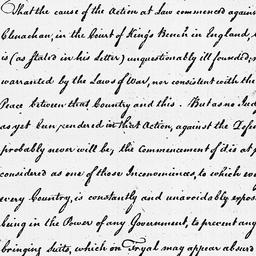 That the cause of the Action at Law commenced again
Clenachan, in the Court of Kings Bench in England,
is (as stated in his Letter) unquestionably ill founded,
warranted by the Laws of War, nor consistent with the
Peace between that Country and this. But as no Jud
as yet been rendered in that Action, against the
probably never will be, the Commencement of it is at
considered as one of those Inconveniences, to which eve
every Country, is constantly and unavoidably expos
being in the Power of any Government, to prevent any
bringing Suits, which on Tryal may appear absurd